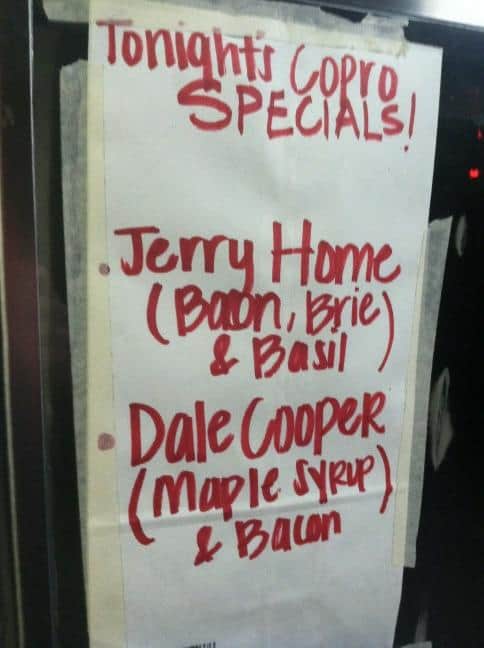 Tonight's Copro
SPECIALS!
• Jerry Horne
(Bacon, Brie)
& Basil
• Dale Cooper
(Maple Syrup)
& Bacon